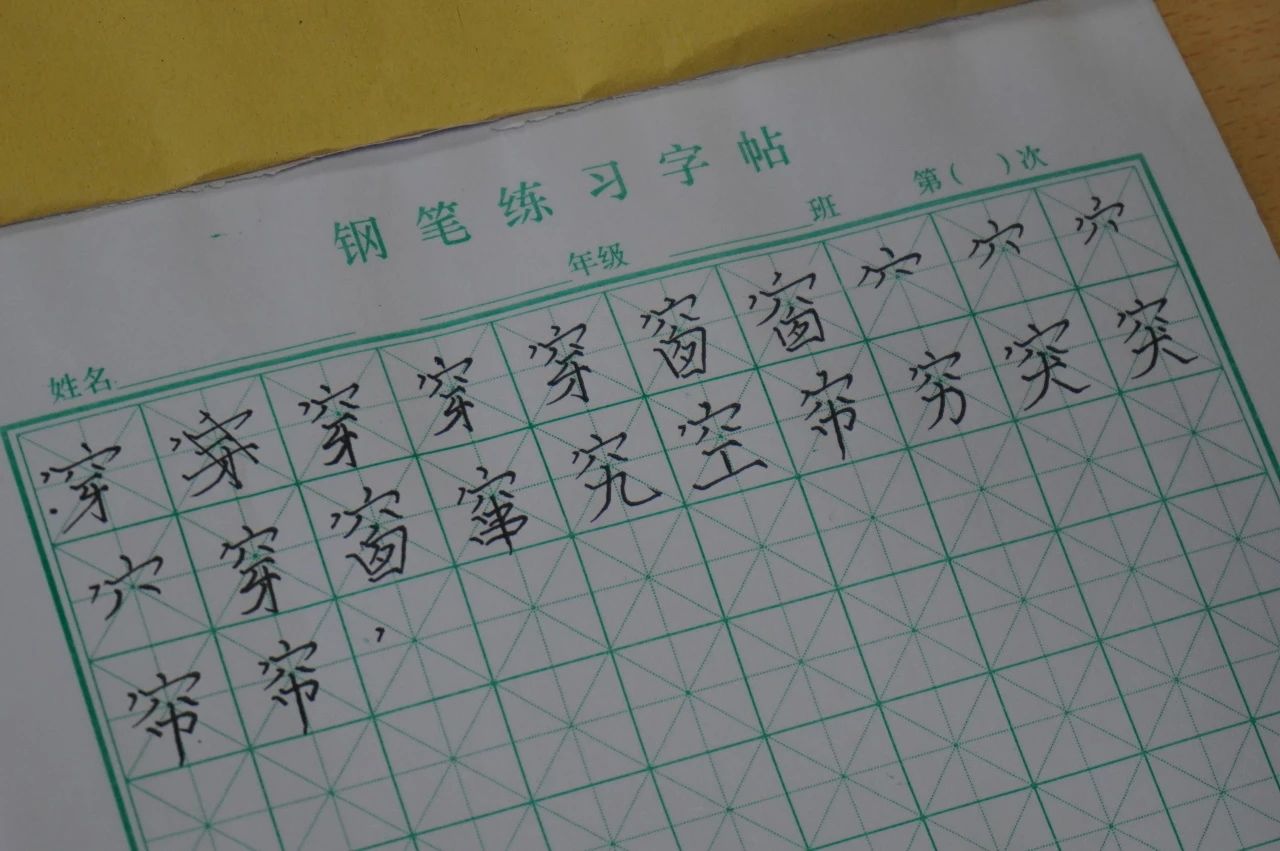 钢笔练习字帖
姓名 年级 班 第( )次
穿 穿 穿 穿 穿 窗 窗 穴 穴 穴
穴 穿 窗 窜 究 空 帘 穷 突 突
帘 帘